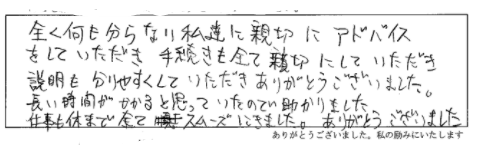 全く何も分らない私達に親切にアドバイス
をしていただき 手続きも全て親切にしていただき
説明も分りやすくしていただきありがとうございました。
長い時間がかかると思っていたので助かりました、
仕事も休まず全てスムーズにできました。ありがとうございました
ありがとうございました。私の励みにいたします